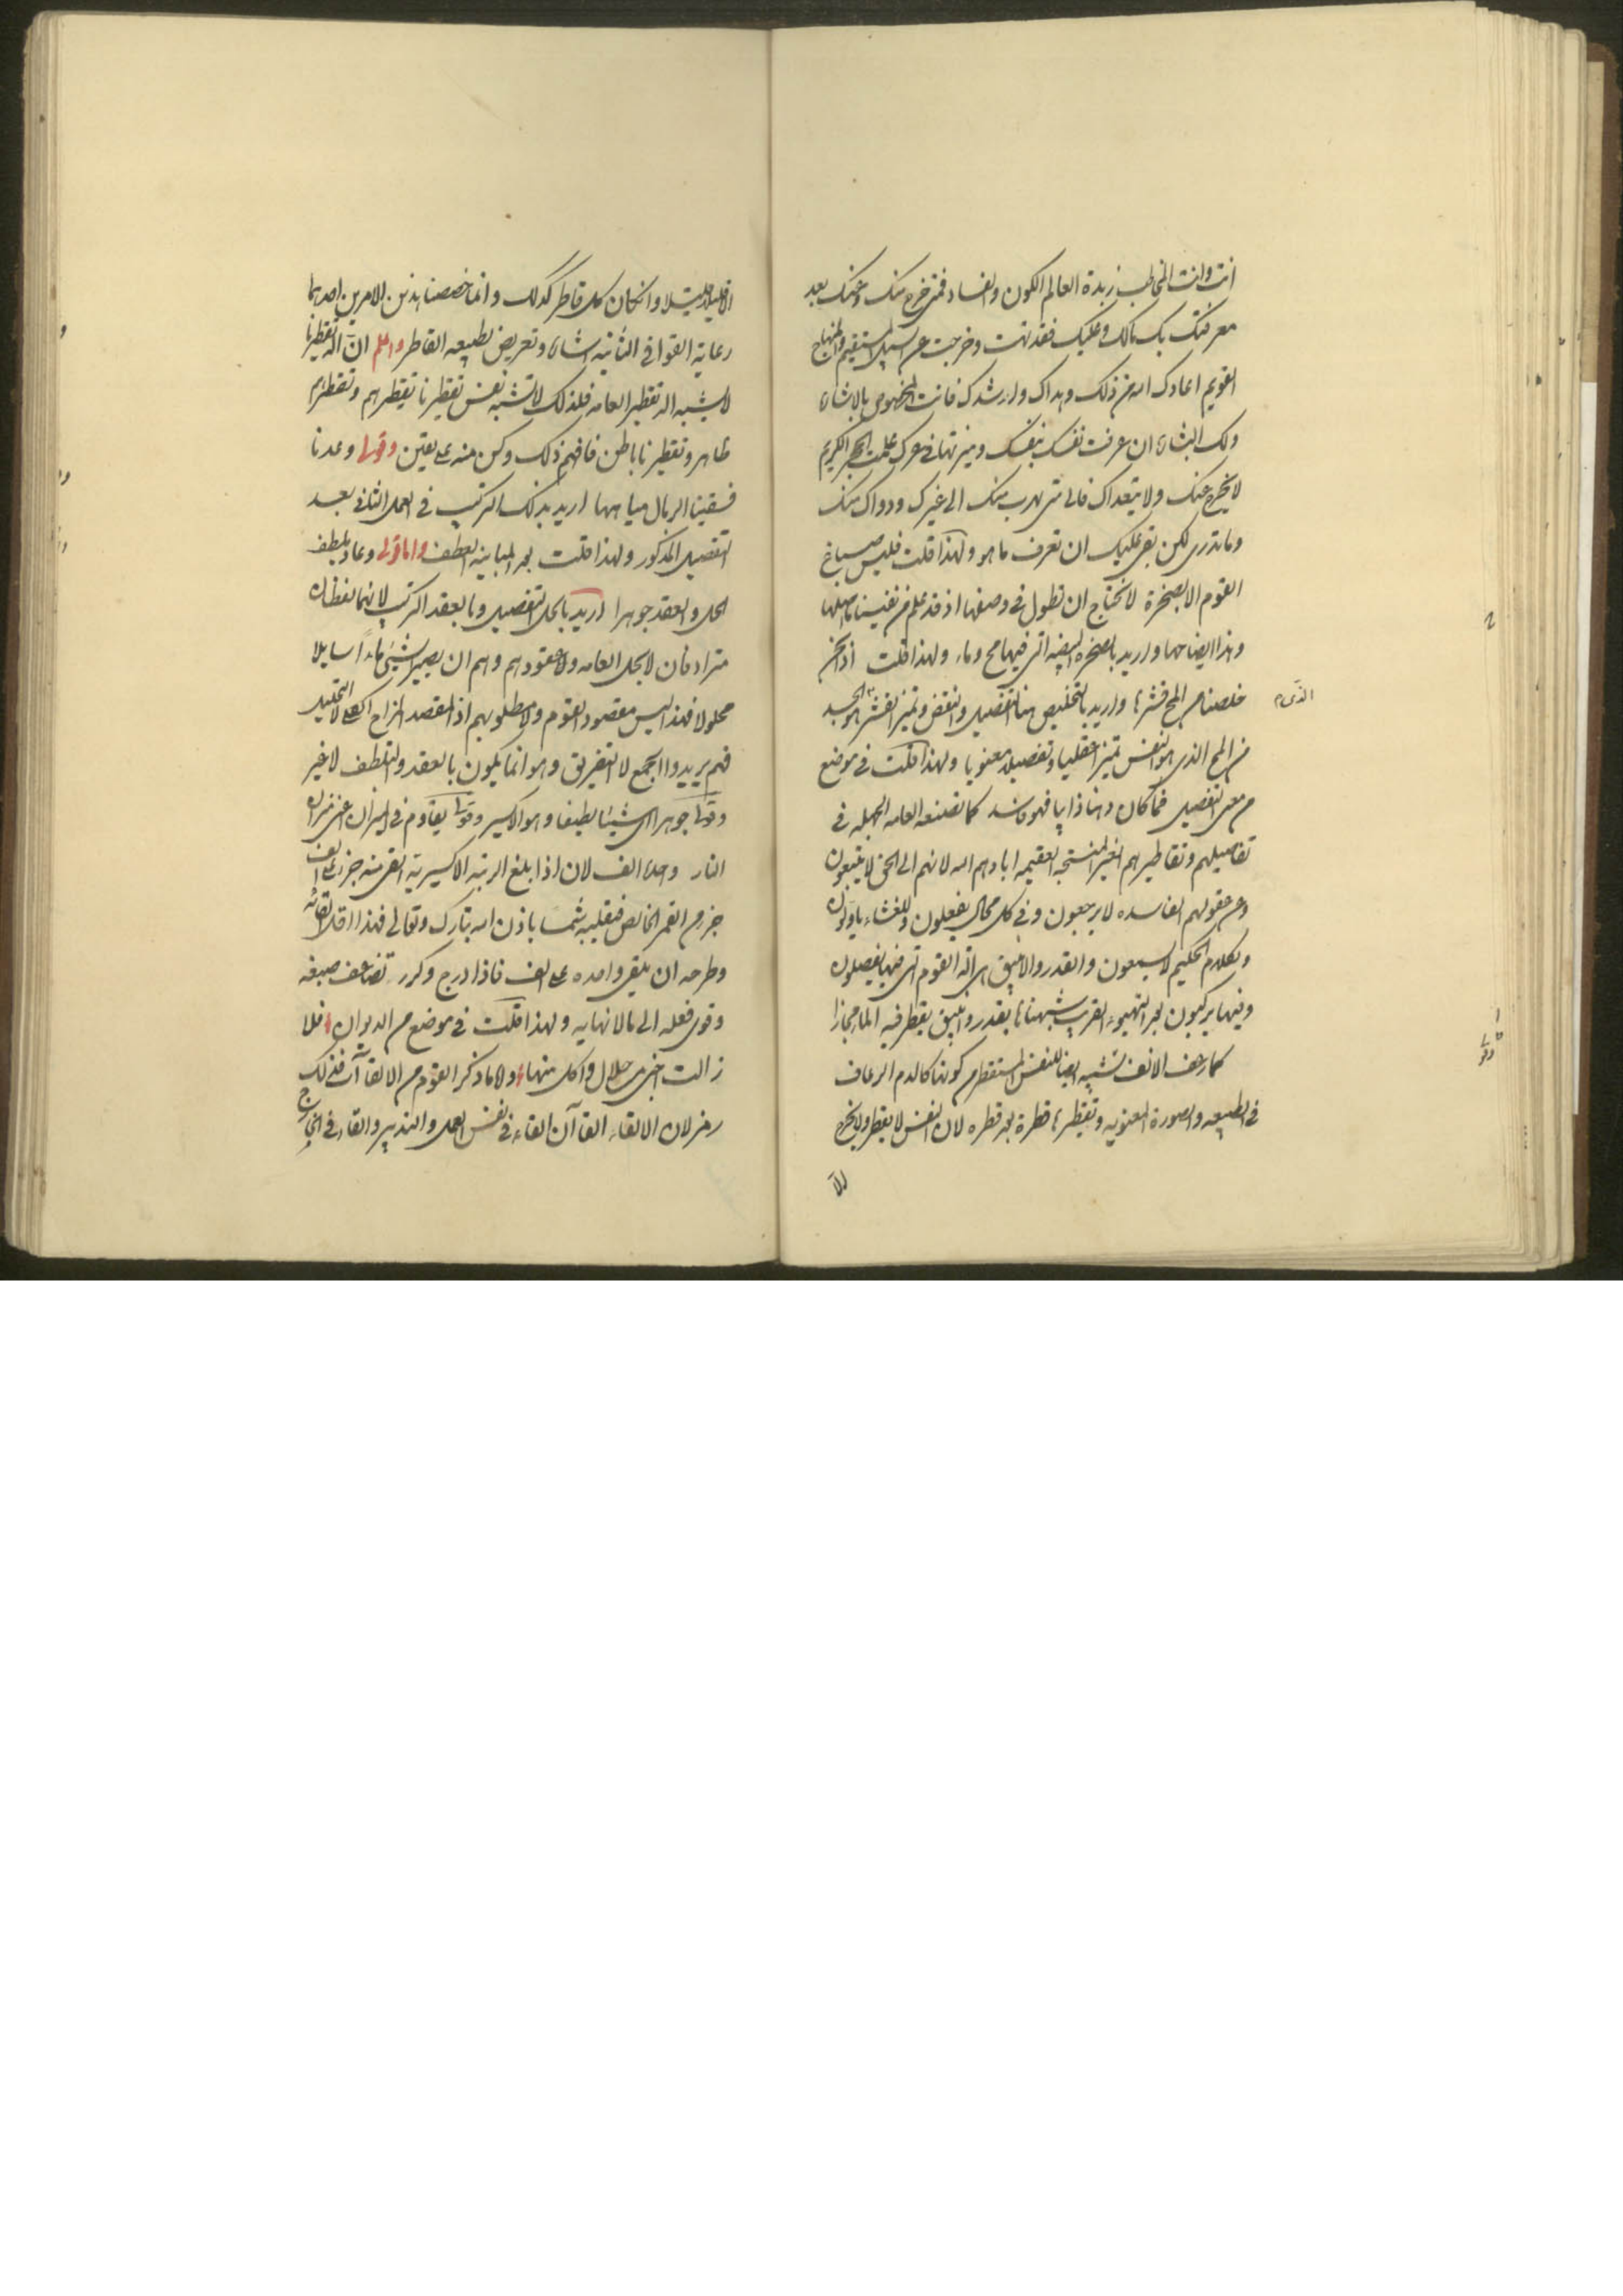 انت وانت المخاطب زبدة العالم الكون والفساد فمتى خرج منك وعنك بعد
معرفتك بك مالك وعليك فقد تهت وخرجت عن السبيل المستقيم والمنهاج
القويم اعادك الله من ذلك وهداك وارشدك فانت المخصوص بالاشاره
ولك البشاره ان عرفت نفسك بنفسك وميزتها في عرك علمت الحجر الكريم
لا يخرج عنك ولا يتعداك فالى متى تهرب منك الى غيرك ودواك منك
وما تدرى لكن بقى عليك ان تعرف ما هو ولهذا قلت فليس صباغ
القوم الا بصخرة لا نحتاج ان نطول في وصفها اذ قد علم من تفسيرنا ما اصلها
وهذا ايضاحها واريد بالصخره البيضه التى فيها مح وماء ولهذا قلت اذا نحن
خلصنا من المح قشرها واريد بالتخليص هنا التفصيل والنقض وتميز القشر هو الجسد
الذى
من المح الذى هو النفس تميزا عقليا وتفصيلا معنويا ولهذا قلت في موضع
من معنى التفصيل فما كان دهنا ذايبا فهو فاسد كما تصنعه العامه الجهله في
تفاصيلهم وتقاطيرهم الغير المنتجه العقيمه ابادهم الله لانهم الى الحق لا يتبعون
وعن عقولهم الفاسده لا يرجعون وفي كل محال يفعلون وللغثاء ياولون
ولكلام الحكيم لا يسمعون والقدر والانبيق هى آلة القوم التى فيها يفصلون
وفيها يركبون لجر التهيوء القريب شبهناها بقدر وانبيق يقطر فيه الما مجازا
كما رعف الانف تشبيه ايضا للنفس المستقطره كونها كالدم الرعاف
في الطبيعه والصورة المعنويه وتقطيرها قطرة بعد قطره لان النفس لا يقطر ولا يخرج
الا
الا قليلا قليلا وان كان كل قاطر كذلك وانما خصصنا بذين الامرين احدهما
رعاية القوافى الثانيه اشاره وتعريض لطبيعه القاطر واعلم ان آلة تقطيرنا
لا يشبه آلة تقطير العامه فلذلك لا تشبه نفس تقطيرنا تقيطرهم وتقطيرهم
ظاهر وتقطيرنا باطن فافهم ذلك وكن منه على يقين وقولها وعدنا
فسقينا الرمال مياهها اريد بذلك التركيب في العمل الثانى بعد
التفصيل المذكور ولهذا قلت بعد المباينه العطف واما قولى وعاد بلطف
الحل والعقد جوهرا اريد بالحل التفصيل وبالعقد التركيب لانهما لفظان
مترادفان لا بحل العامه ولا عقودهم وهم ان يصير الشئ ماءً سايلا
محلولا فهذا ليس مقصود القوم ولا مطلوبهم اذ المقصد المزاج الكلى لا التحليل
فهم يريدوا الجمع لا التفريق وهو انما يكون بالعقد والتلطف لا غير
وقولها جوهرا اى شيئا لطيفا وهو الاكسير وقولها يقاوم في الميزان اعنى ميزان
النار واحده الف لان اذا بلغ الرتبه الاكسيرية القى منه جزء على الف
جزء من القمر الخالص فيقلبه شمسا باذن الله تبارك وتعالى فهذا اقل القائه
وطرحه ان يلقى واحده على الف فاذا درج وكرر تضاعف صبغه
وقوى فعله الى مالا نهايه ولهذا قلت في موضع من الديوان فلا
زالت اجنى من حلال وآكل منهاء ولا ما ذكر القوم من الالقاآت فذلك
رمز لان الالقاء القاآن القاء في نفس العمل والتدبير والقاء في الخارج